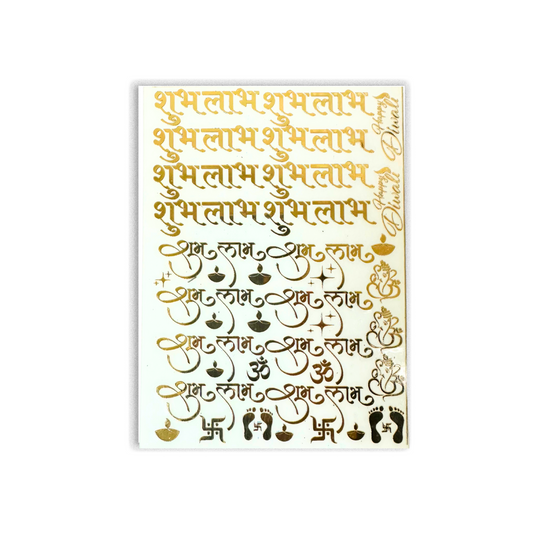 शुभ लाभ शुभ लाभ
शुभ लाभ शुभ लाभ
शुभ लाभ शुभ लाभ
शुभ लाभ शुभ लाभ
Happy
Diwali
Happy
Diwali
शुभ लाभ शुभ लाभ
शुभ लाभ शुभ लाभ
शुभ लाभ शुभ लाभ
ॐ ॐ
शुभ लाभ शुभ लाभ